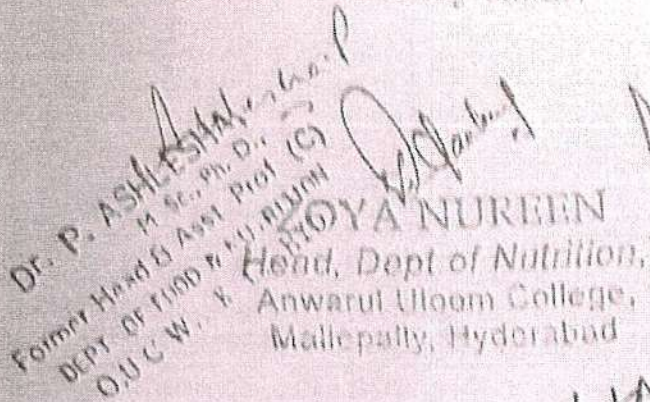 Dr. P. ASHLESHA
M Sc., Ph. D.,
Former Head & Asst Prof (C)
DEPT. OF FOOD &
O.U C W.
ZOYA NUREEN
Head, Dept of Nutrition,
Anwarul Uloom College,
Mallepally, Hyderabad